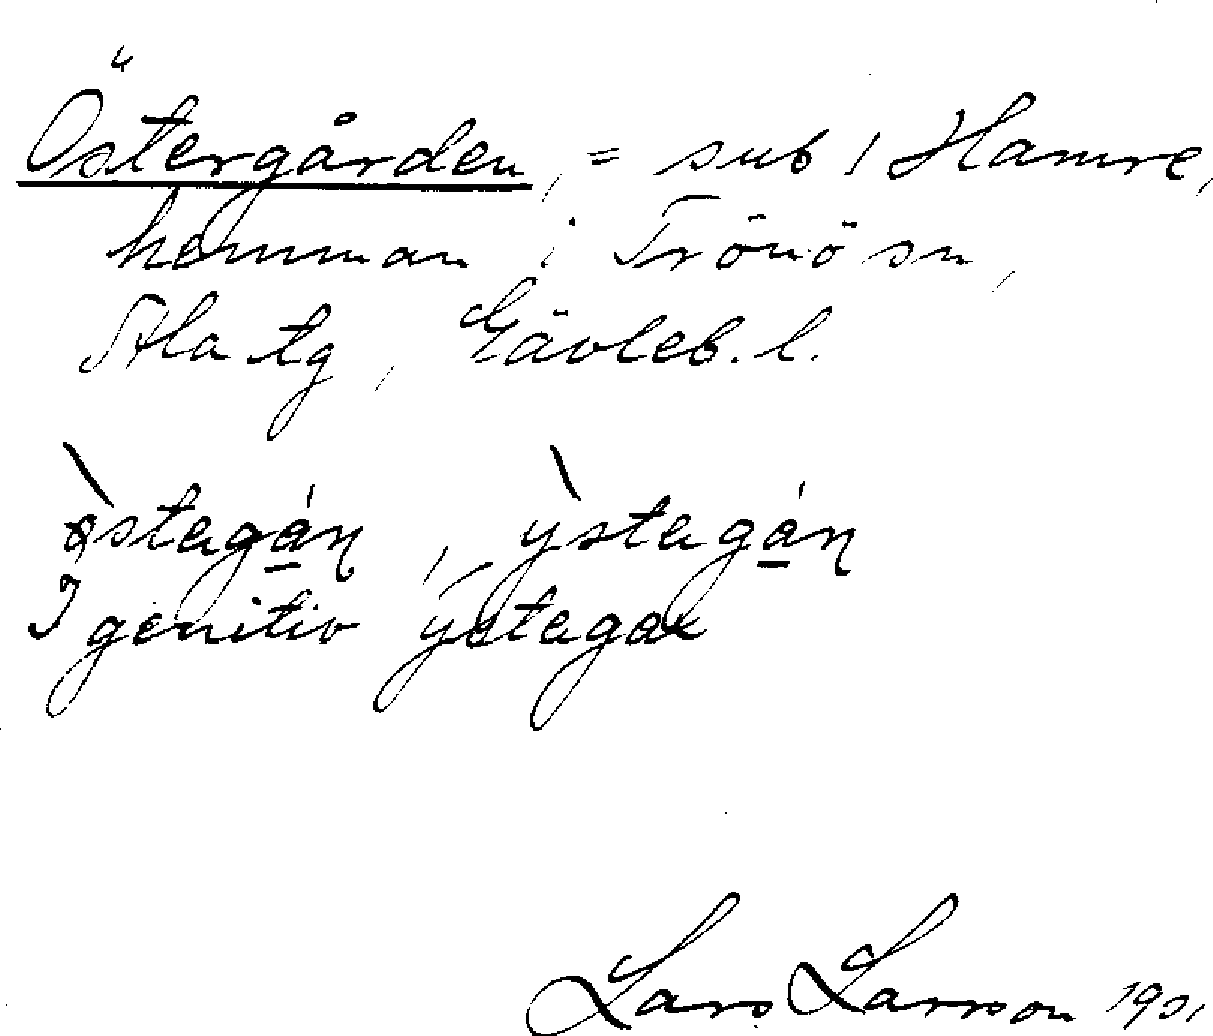 Östergården, = sub 1 Hamre,
hemman i Trönö sn,
Ala tg, Gävleb. l.
østagán, ỳstagán
I genitiv
Lars Larsson